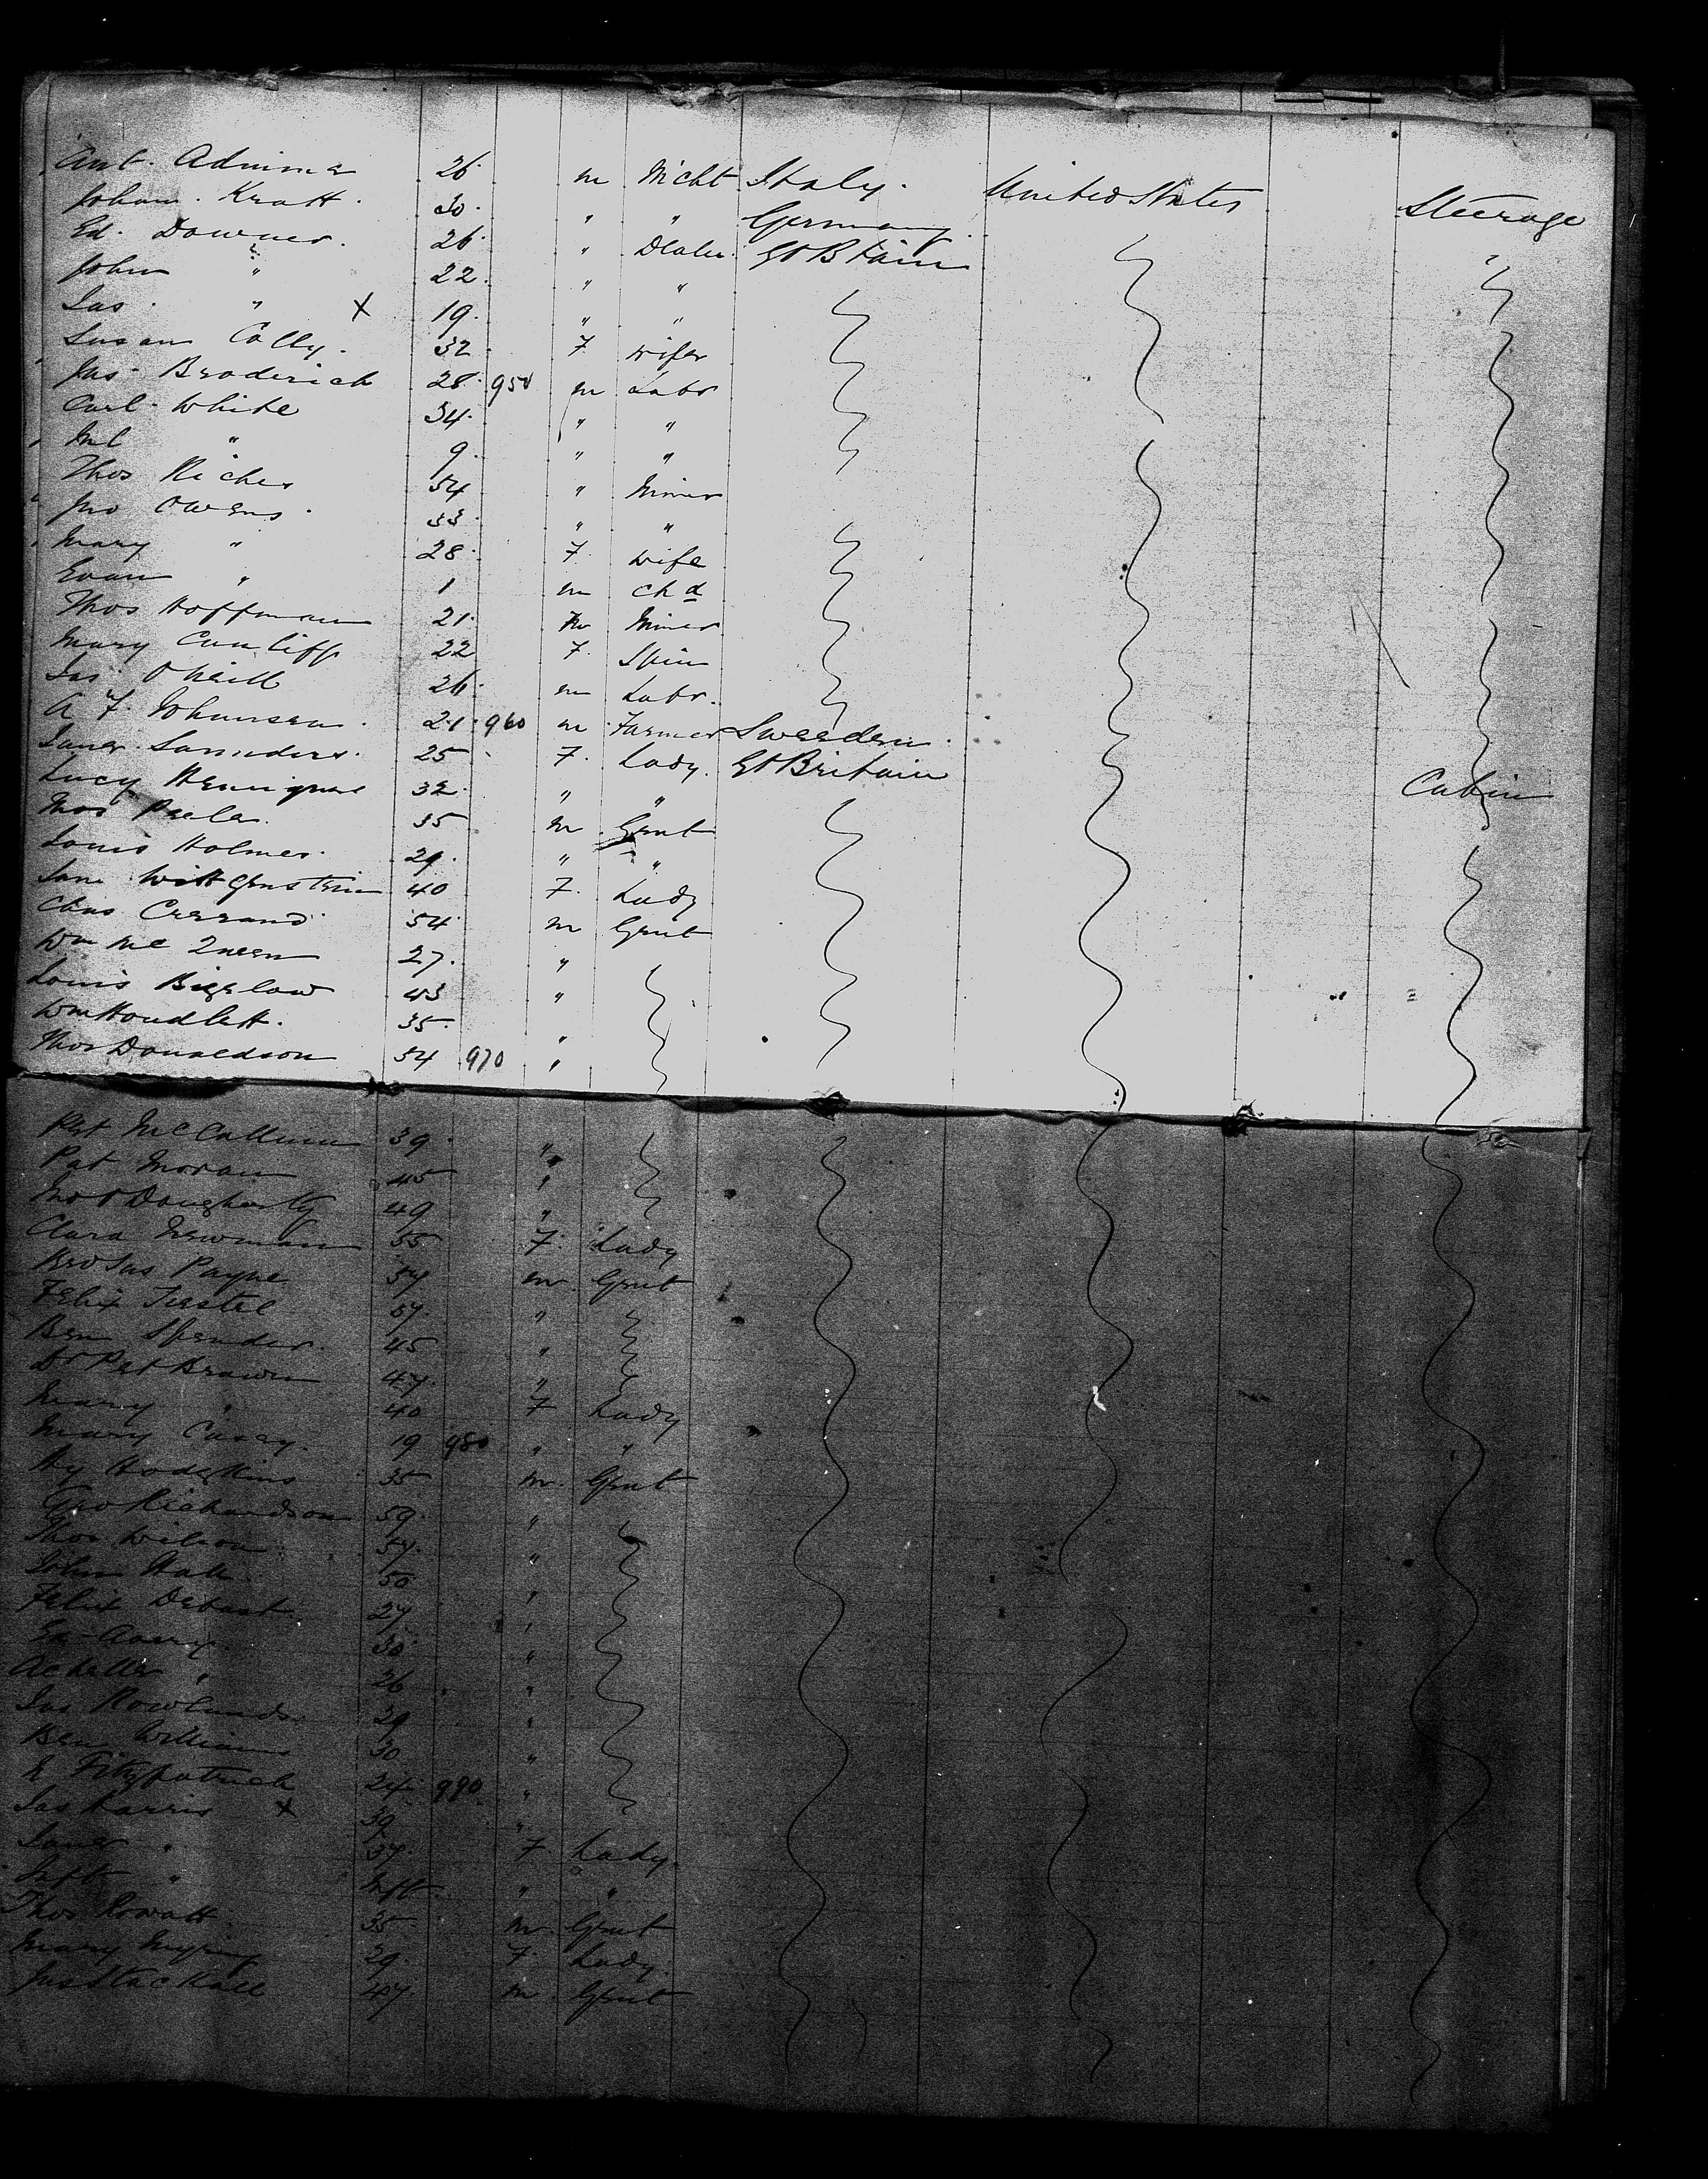 Ant. Adnima 26 m Mcht Italy. United States Steerage
Johan. Kratt. 30. " " Germany.
Ed. Downer. 26. " Dealer. Gt Btain
John " 22. " "
Jas. " X 19. " "
Susan Colly. 32. F wife
Jas. Broderick 28. 950 m Labr
Carl. White 34. " "
Ml " 9. " "
Thos Riches 54 " Miner
Jno Owens. 33. " "
Mary " 28. F. wife
Evan " 1 m chd
Thos Hoffman 21. m Miner
Mary Cunliff 22 F. Spin
Jas. O'Neill 26. m Labr.
A F. Johansen. 21. 960 m. Farmer Sweeden.
Janer. Saunders. 25 F. Lady. Gt Britain Cabin
Lucy 32. " "
Thos Peeler. 35 m. Gent
Louis Holmes. 29. " "
Jane Wittgenstein 40 F. Lady
Chas 54. m Gent
Wm Mc Queen 27. "
Louis Bigelow 43 "
Wm Houdlett. 35. "
Thos Donaldson 54 970 "
Pat McCallum 39. "
Pat Moran 45 "
Jno O'Dougherty 49 "
Clara Newman 35 F. Lady
Payne 54 m. Gent
Felix 57. "
Ben Spender. 45 "
Dr Pat Brown 47. "
Mary " 40 F Lady
Mary Casey. 19 980 " "
Hy Hodgkins 35 m. Gent
Geo Richardson 59. "
Thos Wilson 57. "
John Hale. 50 "
Felix Debast 27 "
30 "
Achelles " 26 "
Jas Rowlands. 29 "
Ben Williams 30 "
E Fitzpatrick 24. 990. "
Jas Harris X 39 "
Janer " 37. F Lady.
Inft " Inft. " "
Thos Rowatt 35. m. Gent
Mary 29. F. Lady.
47 m. Gent